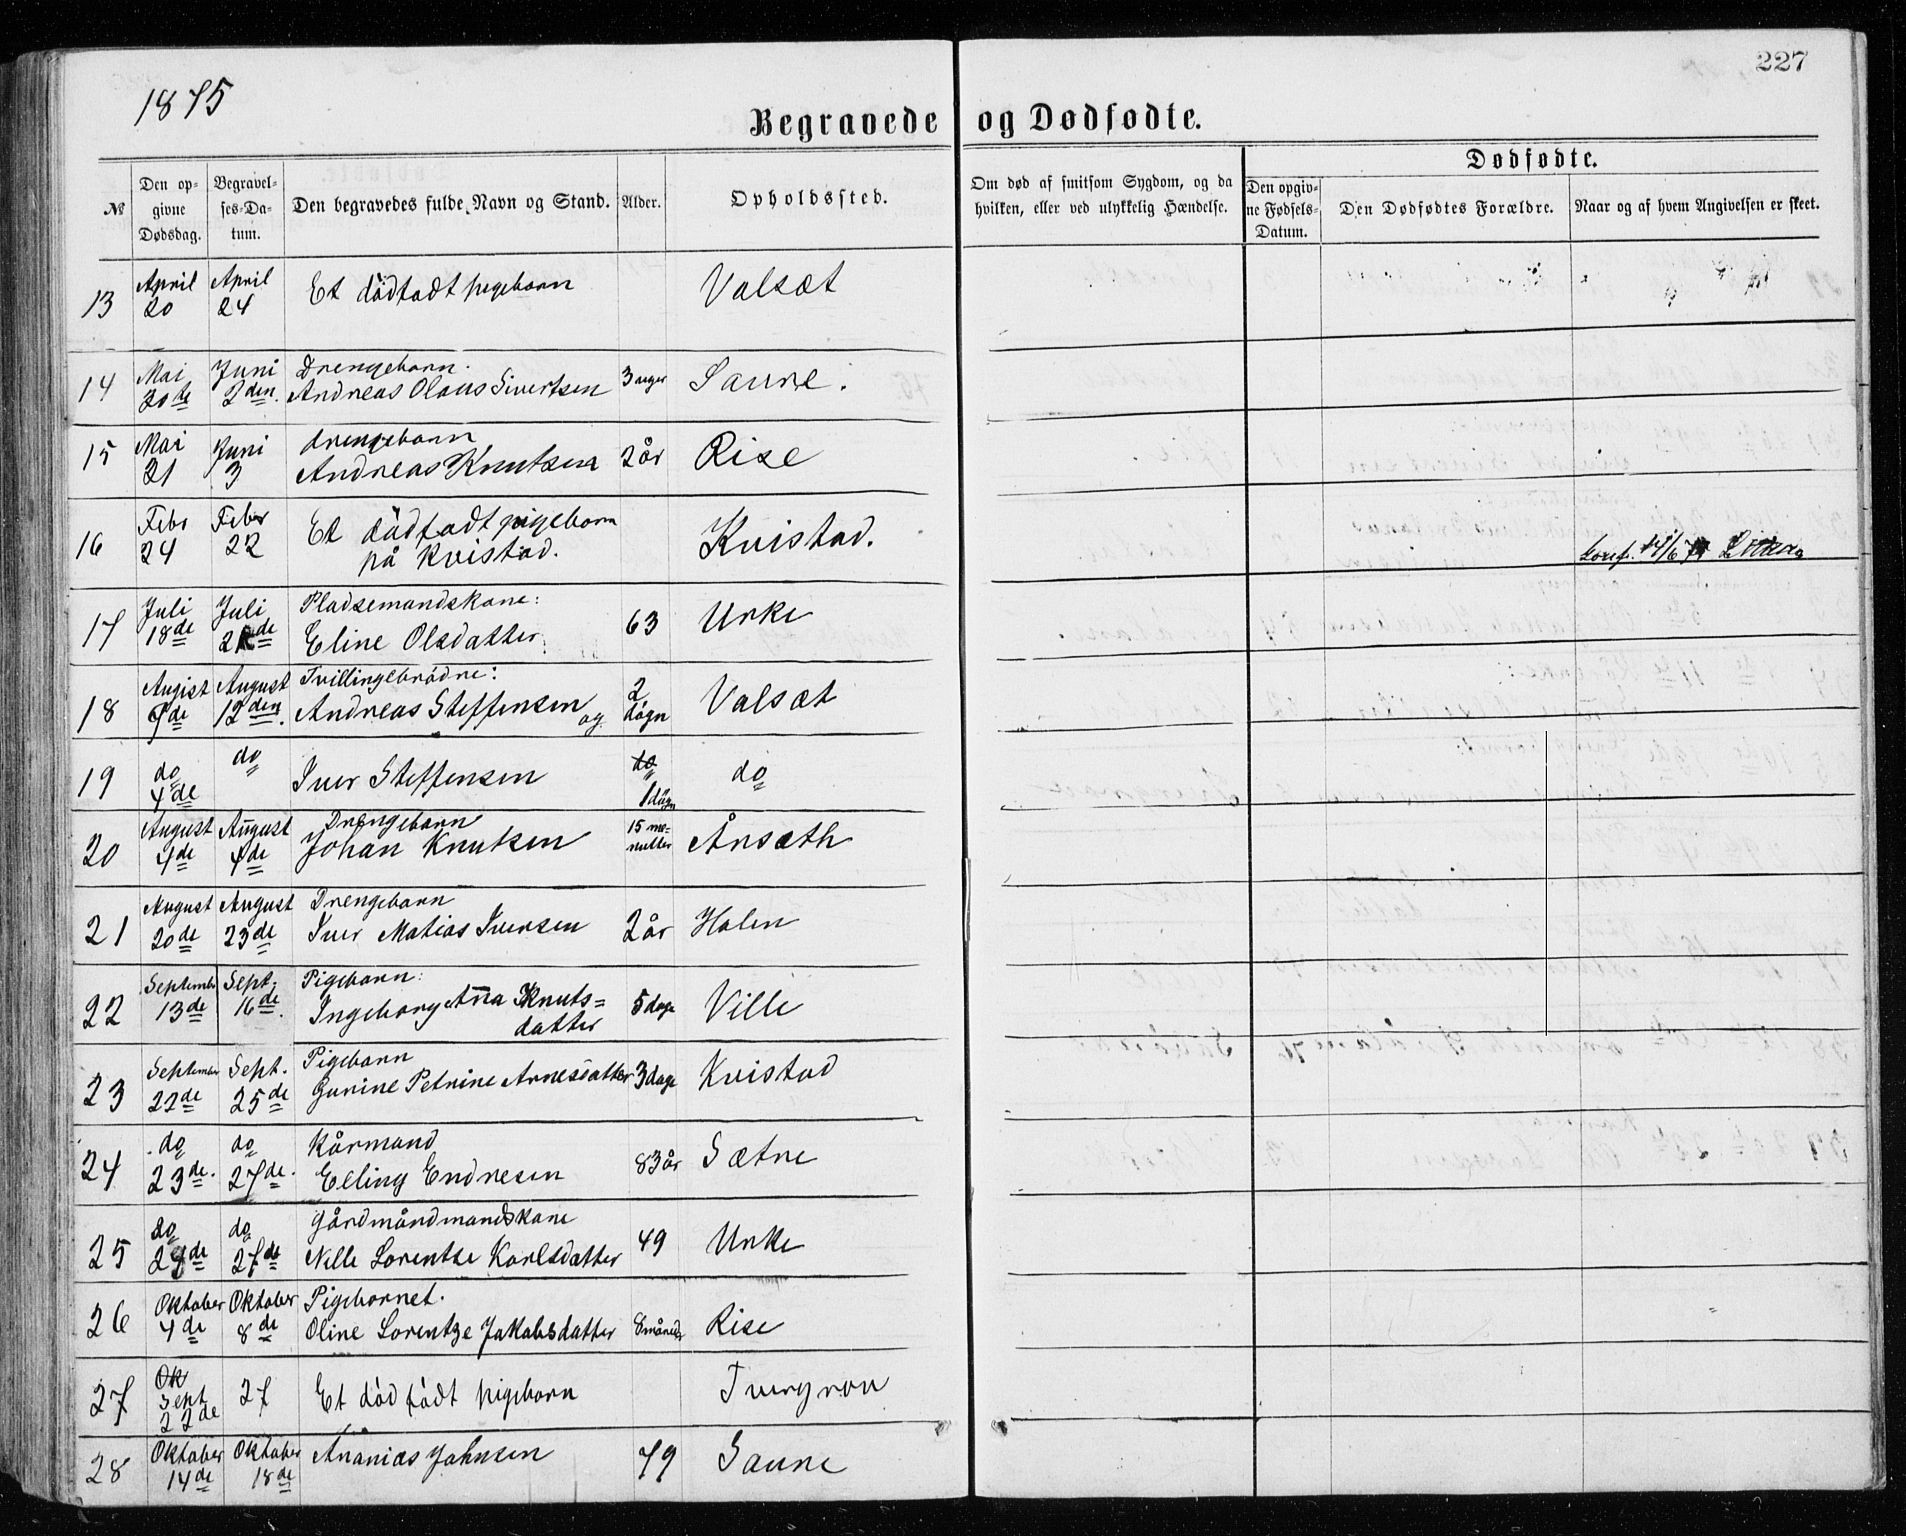 227
1875
Begravede og Dødfødte.
Dødfødte.
№
Den op-
givne
Dødsdag.
Begravel-
ses-Da-
tum.
Den begravedes fulde Navn og Stand.
Alder.
Opholdssted.
Om død af smitsom Sygdom, og da
hvilken, eller ved ulykkelig Hændelse.
Den opgiv-
ne Fødsels-
Datum.
Den Dødfødtes Forældre.
Naar og af hvem Angivelsen er skeet.
13 April 20 April 24 Et dödfødt pigebarn Valsæt
14 Mai 20te Juni 2den. Drengebarn.
Andreas Olaus Sivertsen 3 uger Saure.
15 Mai 21 Juni 3 drengebarn
Andreas Knutsen 2 år Rise
16 Febr 24 Febr 22 Et dödfødt pigebarn
på Kvistad. Kvistad.
17 Juli 18de Juli 21de Pladsemandskone:
Eline Olsdatter. 63 Urke
18 Augist 9de August 12den. Tvillingebrödne:
Andreas Steffensen og 2 døgn Valsæt
19 do 4de do Iver Steffensen do 1 dögn do
20 August 4de August 4de Drengebarn
Johan Knutsen 15 me-
nutter Årsæth
21 August 20de August 23de Drengebarn
Iver Matias Iversen 2 år Holen
22 September 13de Sept. 16de. Pigebarn:
Ingeborg Anna Knuts=
datter 5 dage Ville
23 September 22de Sept. 25de Pigebarn
Gurine Petrine Arnesdatter 3 dage Kvistad
24 do 23de. do 27de. Kårmand
Elling Endresen 83 år Sætre
25 do 24de do 27de gårdmåndmandskone
Nille Lorentse Karlsdatter 49 Urke
26 Oktober 4de Oktober 8de Pigebarnet.
Oline Lorentze Jakobsdatter 8 måneder Rise
27 Ok
Sept 22de 27 Et död födt pigebarn Tvergrov
28 Oktober 14de Oktober 18de Ananias Johnsen 79 Saure